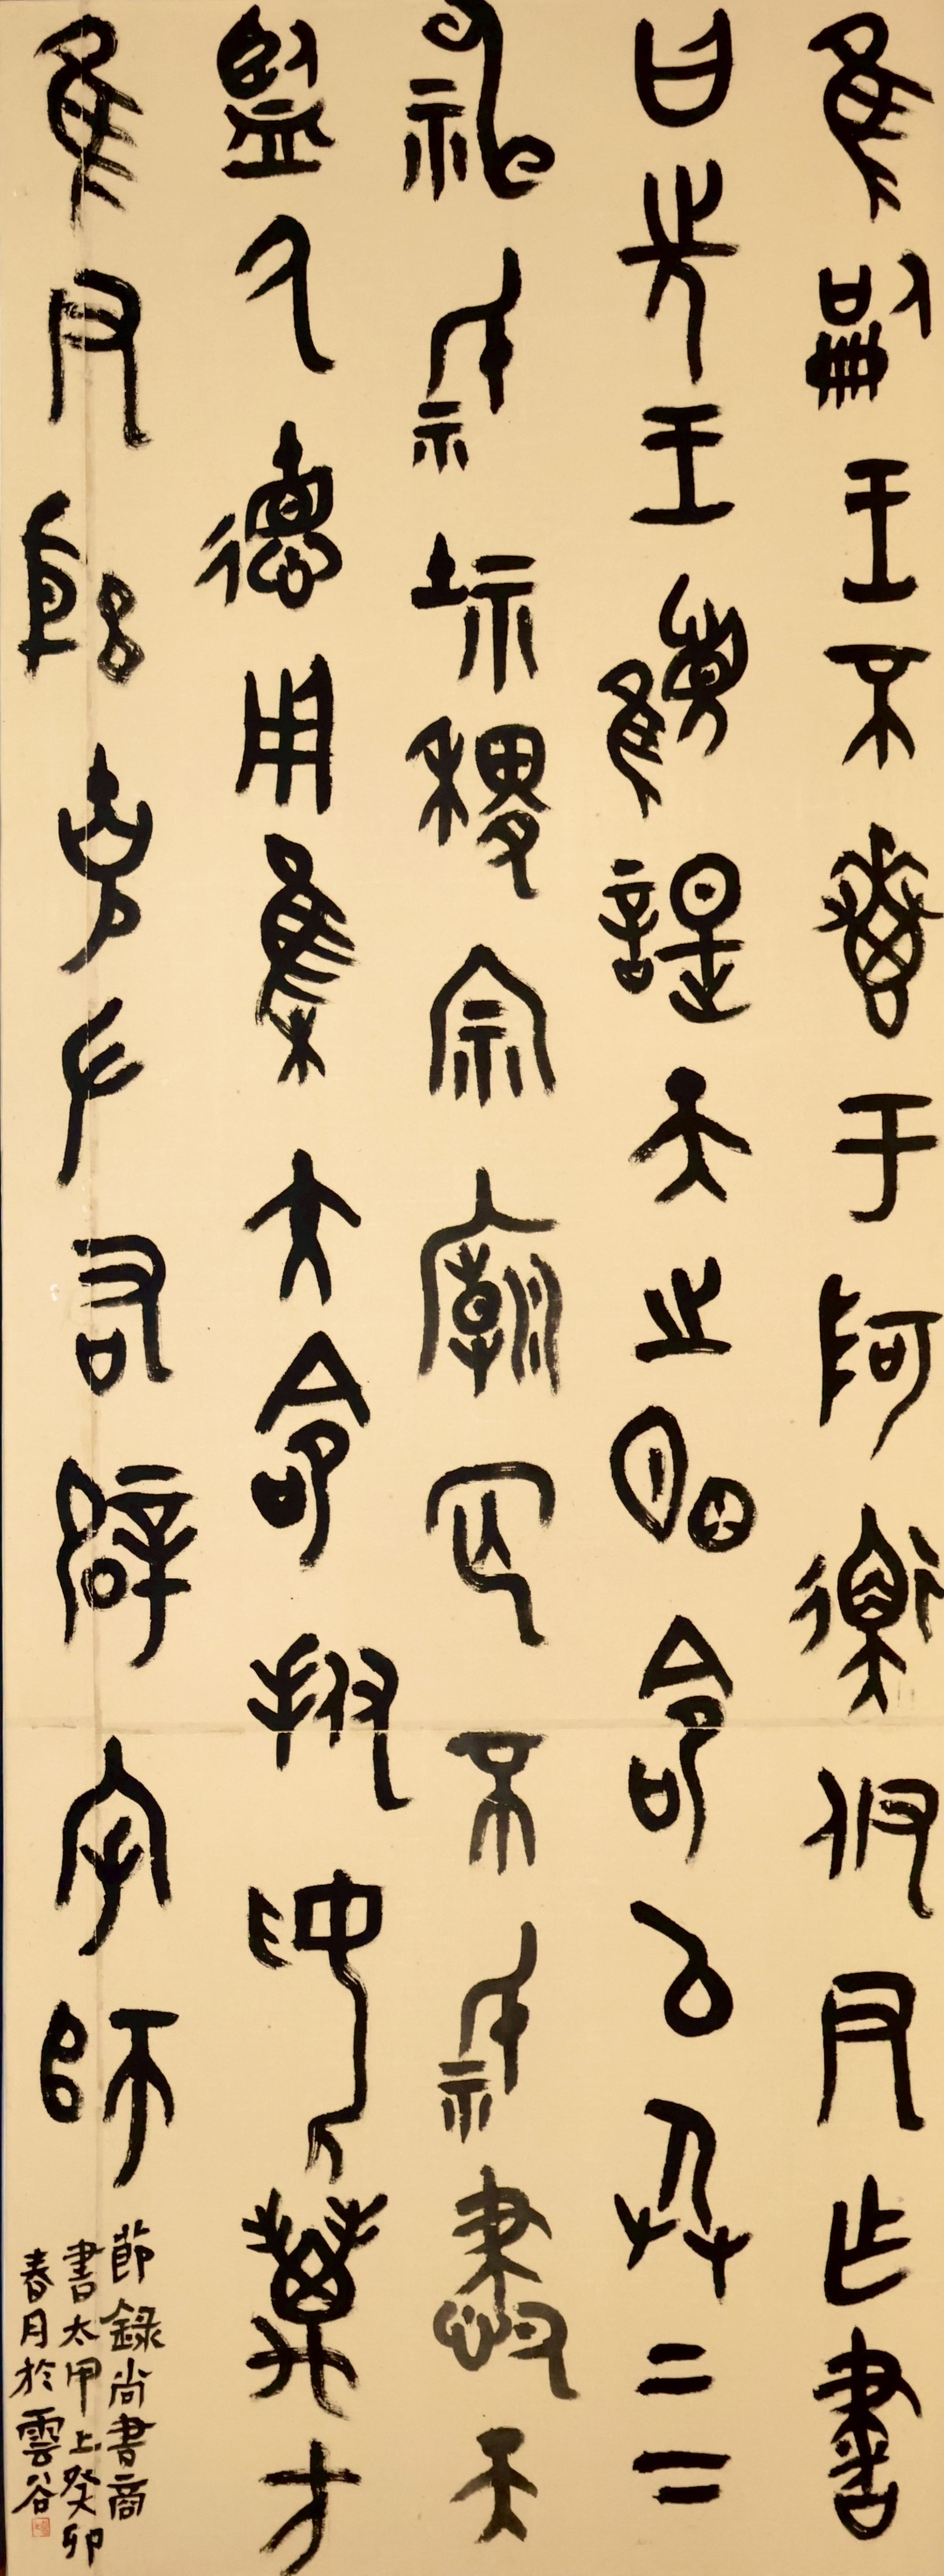 惟嗣王不惠于阿衡伊尹作書
曰先王顧諟天之明命以承上下
神祇社稷宗廟罔不祗肅天
監厥德用集大命撫綏萬方
惟尹躬克左右辟宅師
節錄尚書商
書太甲上癸卯
春月於雲谷